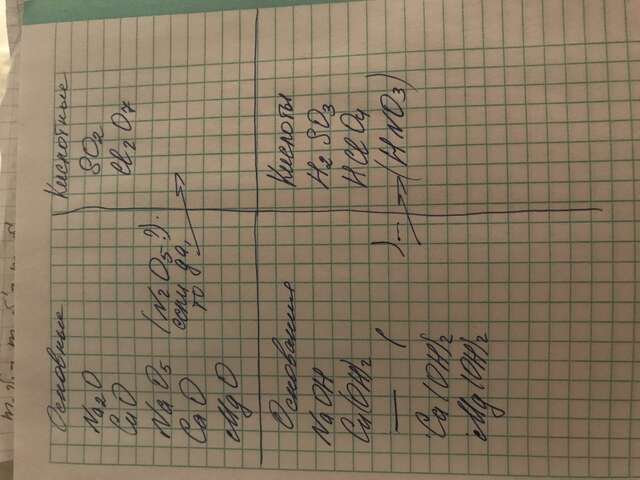 Основные
Na₂O
CuO
Na O₅ (N₂O₅?).
если да,
то
CaO
MgO
Кислотные
SO₂
Cl₂O₇
Основания
NaOH
Cu(OH)₂
—
Ca(OH)₂
Mg(OH)₂
Кислоты
H₂SO₃
HClO₄
(HNO₃)